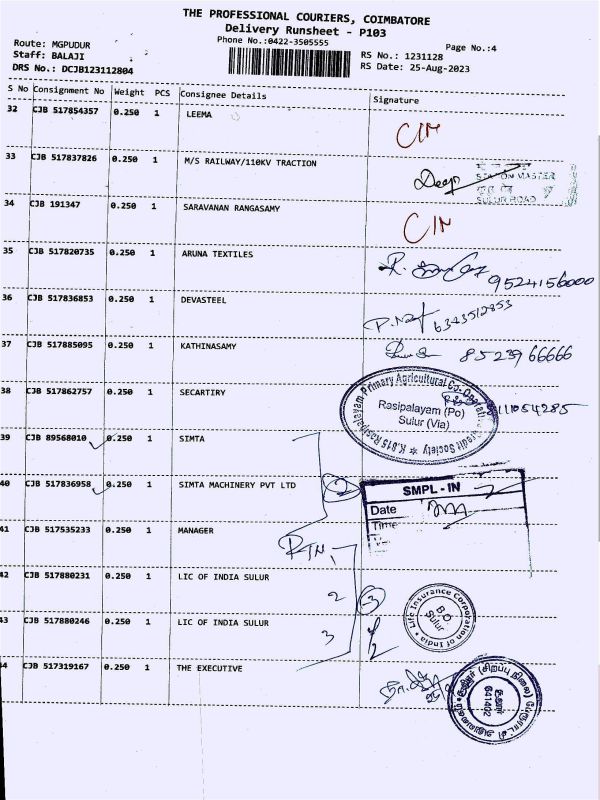 THE PROFESSIONAL COURIERS, COIMBATORE
Delivery Runsheet - P103
Phone No.:0422-3505555
Page No.:4
Route: MGPUDUR
Staff: BALAJI
DRS No.: DCJB123112804
RS No.: 1231128
RS Date: 25-Aug-2023
S No Consignment No Weight PCS Consignee Details Signature
32 CJB 517854357 0.250 1 LEEMA
33 CJB 517837826 0.250 1 M/S RAILWAY/110KV TRACTION
Deep
STATION MASTER
SULUR ROAD
34 CJB 191347 0.250 1 SARAVANAN RANGASAMY
35 CJB 517820735 0.250 1 ARUNA TEXTILES
9524156000
36 CJB 517836853 0.250 1 DEVASTEEL
37 CJB 517885095 0.250 1 KATHINASAMY
8523966666
38 CJB 517862757 1 0.250 1 SECARTIRY
K.815 Rasipalayam Primary Agricultural Co-Operative Credit Society
Rasipalayam (Po)
Sulur (Via)
39 CJB 89568010 0.250 1 SIMTA
40 CJB 517836958 0.250 1 SIMTA MACHINERY PVT LTD 2
SMPL - IN
Date
Time
41 CJB 517535233 0.250 1 MANAGER
RTN
42 CJB 517880231 0.250 1 LIC OF INDIA SULUR
2 3
Life Insurance Corporation of India
B O
Sulur
43 CJB 517880246 0.250 1 LIC OF INDIA SULUR
3
44 CJB 517319167 0.250 1 THE EXECUTIVE
சூலூர்
641402